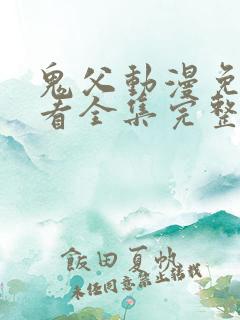 鬼父動漫免
看全集完整
飯田夏帆
未经同意禁止转载